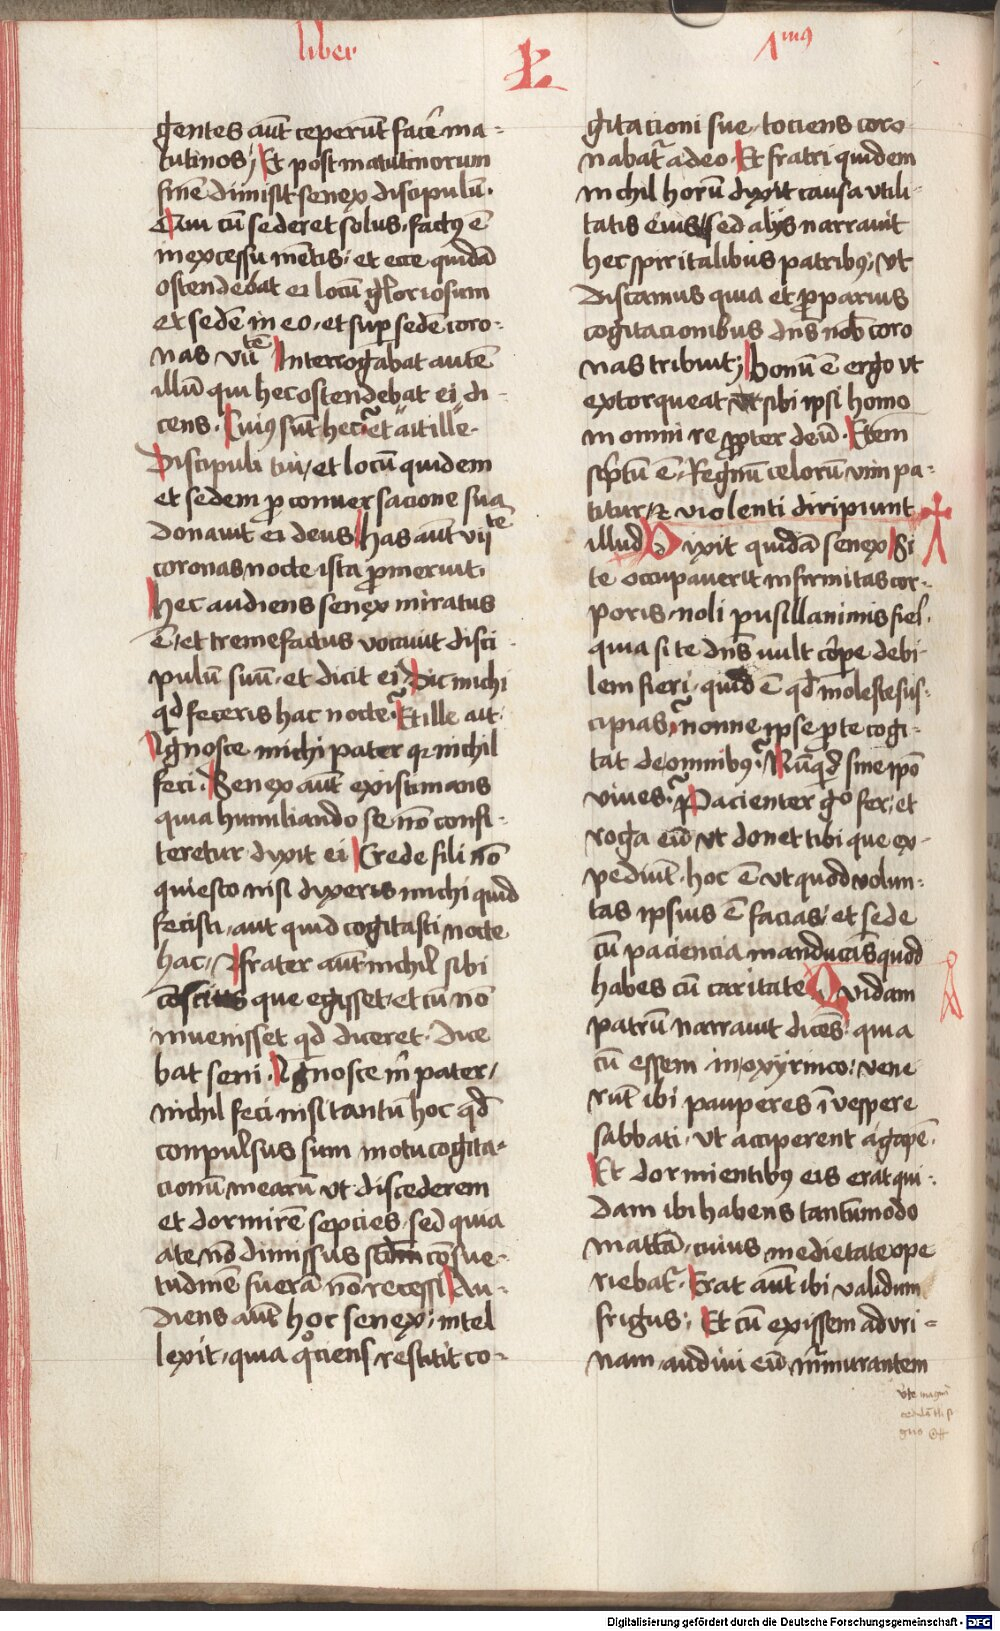 liber
1mꝰ
gentes aūt ceperūt facẽ ma-
tutinos; Et post matutinorum
finē dimisit senex discipulū.
Qui cū sederet solus, factꝰ ē
in excessu mētis, et ecce quidā
ostendebat ei locū gloriosum
et sedē in eo, et suꝑ sedē coro-
nas viitē Interrogabat autē
illū qui hec ostendebat ei di-
cens. Cuiꝰ sūt hec? et ait ille.
Discipuli tui, et locū quidem
et sedem ꝓ conuersacione sua
donauit ei deus has aūt viitē
coronas nocte ista ꝓmeruit.
Hec audiens senex miratus
ē, et tremefactus vocauit disci
pulū suū, et dicit ei Dic michi
qd feceris hac nocte? Et ille ait.
Ignosce michi pater qꝛ nichil
feci. Senex aūt existimans
quia humiliando se nō confi-
teretur dyxit ei Crede fili nō
quiesco nisi dyxeris michi quid
fecisti, aut quid cogitasti nocte
hac, frater aūt nichil sibi
cōscius que egisset, et cū nō
inuenisset qd diceret. Dice
bat seni. Ignosce m̄ pater,
nichil feci nisi tantū hoc qd̄
conpulsus sum motu cogita-
cionū mearū vt discederem
et dormirē sepcies, sed quia
a te nō dimissus scdm cōsue-
tudinē fuerā nō recessi Au-
diens aūt hoc senex, intel
lexit, quia qͦciens restitit co-
gitacioni sue, tociens coro
nabat᷑ a deo. Et fratri quidem
nichil horū dyxit causa vtili
tatis eius, sed alijs narrauit
hec spiritalibus patribꝰ, vt
discamus quia et ꝓ paruis
cogitacionibus dn̄s nob̄ coro
nas tribuit; bonū ē ergo vt
extorqueat vt sibi ipsi homo
in omni re ꝓpter deū. Etem
scͥptū ē, Regnū celorū vim pa-
titur, et violenti diripiunt
illud Dixit quidā senex Si
te occupauerit infirmitas cor-
poris, noli pusillanimis fieī.
quia si te dn̄s uult cōrpe debi
lem fieri, quid ē qd̄ moleste sus-
cipias, nonne ipse ꝓ te cogi-
tat de omnibꝰ? Nūqd̄ sine ipō
viues? Pacienter gͦ fer, et
roga eū vt donet tibi que ex-
pediūt. hoc ē vt quod volun-
tas ipsius ē facias, et sede
cū paciencia manducās quod
habes cū caritate Quidam
patrū narrauit dicēs: quia
cū essem in oxyrinco, vene
rūt ibi pauperes ī vespere
sabbati, vt acciperent agapē.
Et dormientibꝰ eis erat qui-
dam ibi habens tantūmodo
mattā, cuius medietate ope
riebat᷑. Erat aūt ibi validum
frigus; Et cū exissem ad vri-
nam, audiui eū m̄murantem
Digitalisierung gefördert durch die Deutsche Forschungsgemeinschaft - DFG